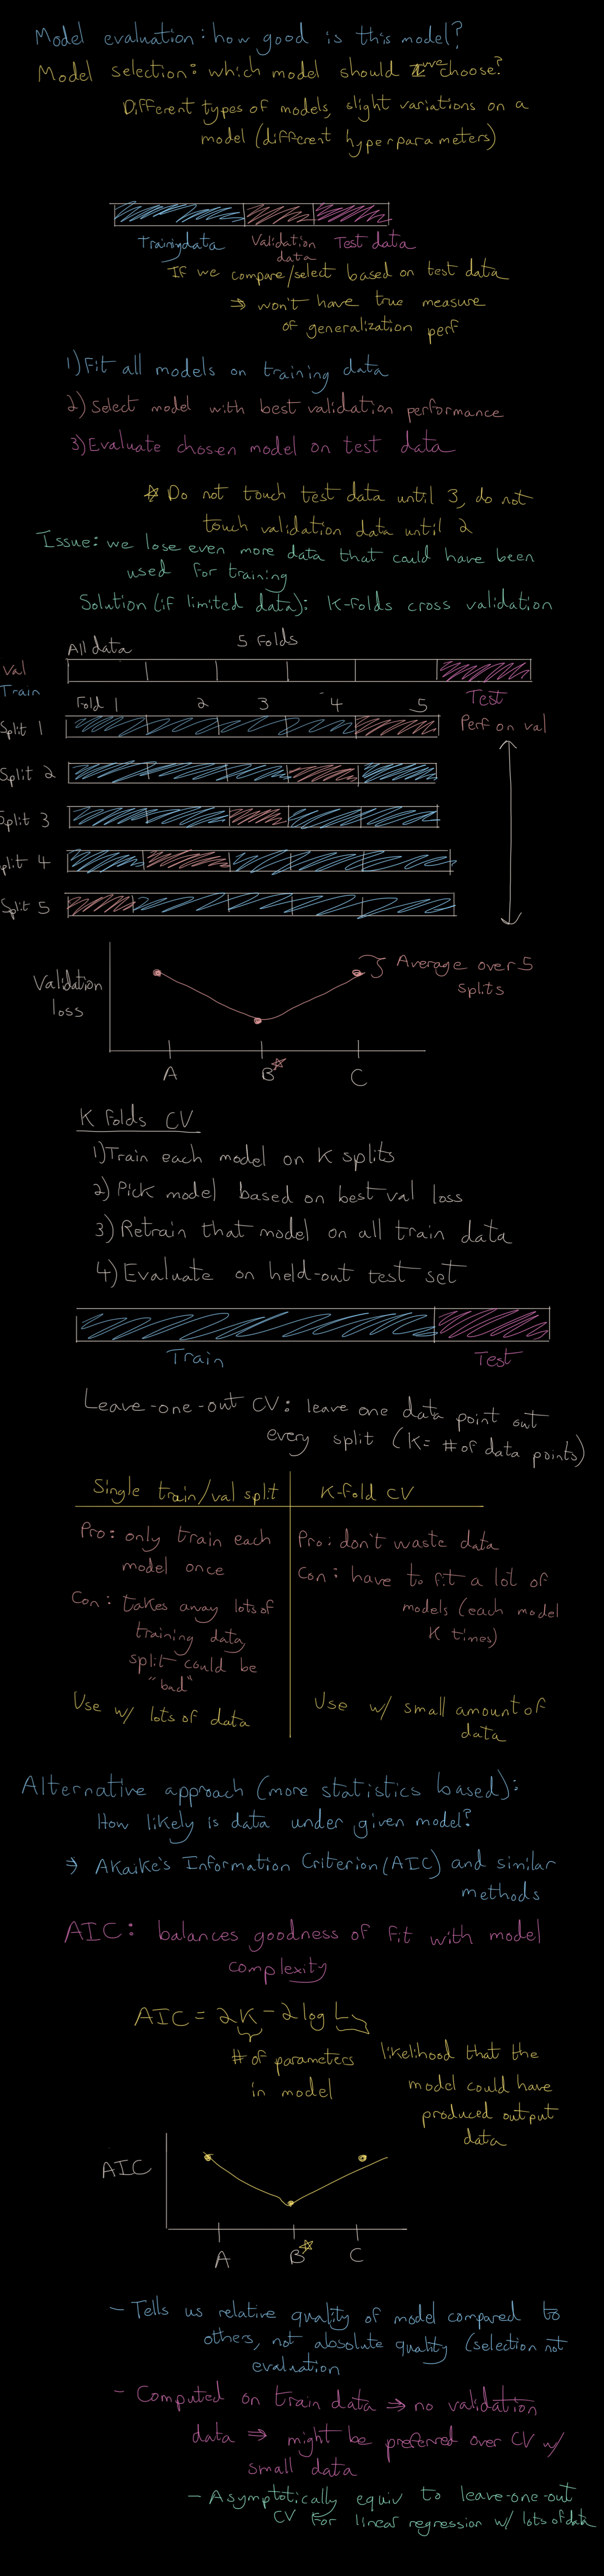 Model evaluation: how good is this model?
Model selection: which model should we choose?
Different types of models, slight variations on a
model (different hyperparameters)
Training data Validation data Test data
If we compare/select based on test data
⇒ won't have true measure
of generalization perf
1) Fit all models on training data
2) Select model with best validation performance
3) Evaluate chosen model on test data
☆ Do not touch test data until 3, do not
touch validation data until 2
Issue: we lose even more data that could have been
used for training
Solution (if limited data): K-folds cross validation
All data 5 Folds
Val
Train
Test
Fold 1 2 3 4 5
Split 1 Perf on val
Split 2
Split 3
Split 4
Split 5
Validation
loss
Average over 5
splits
A B☆ C
K Folds CV
1) Train each model on K splits
2) Pick model based on best val loss
3) Retrain that model on all train data
4) Evaluate on held-out test set
Train Test
Leave-one-out CV: leave one data point out
every split (K = # of data points)
Single train/val split
Pro: only train each
model once
Con: takes away lots of
training data
split could be
"bad"
Use w/ lots of data
K-Fold CV
Pro: don't waste data
Con: have to fit a lot of
models (each model
K times)
Use w/ small amount of
data
Alternative approach (more statistics based):
How likely is data under given model?
⇒ Akaike's Information Criterion (AIC) and similar
methods
AIC: balances goodness of fit with model
complexity
AIC = 2K - 2 log L
# of parameters
in model
likelihood that the
model could have
produced output
data
AIC
A B☆ C
- Tells us relative quality of model compared to
others, not absolute quality (selection not
evaluation
- Computed on train data ⇒ no validation
data ⇒ might be preferred over CV w/
small data
- Asymptotically equiv to leave-one-out
CV for linear regression w/ lots of data